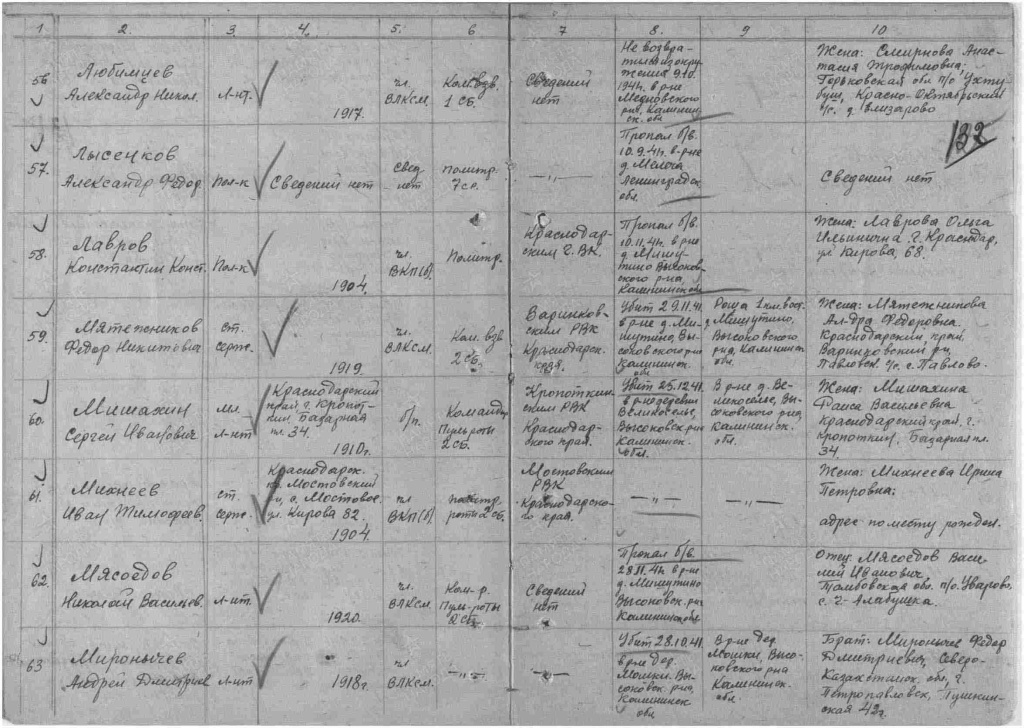 1. 2. 3. 4. 5. 6 7 8. 9 10
56
Любимцев
Александр Никол.
Л-нт.
1917.
чл.
ВЛКСМ.
Ком. взв.
1 сб.
Сведений
нет
Не возвра-
тился из окру-
жения 9.10.
1941г. в р-не
Медновского
р-на, Калинин-
ск. обл
Жена: Смирнова Анас-
тасия Трофимовна;
Горьковская обл п/о Ухту-
буш, Красно-Октябрьский
с/с. д. Елизарово
132
57.
Лысенков
Александр Федор.
Пол-к
Сведений нет
свед
нет
Политр.
7 ср.
— „ —
Пропал б/в.
10.9.41г. в р-не
д. Мелека
Ленинградск.
обл.
Сведений нет
58.
Лавров
Константин Конст.
Пол-к
1904.
чл.
ВКП(б).
Политр.
Краснодар-
ским Г.ВК.
Пропал б/в.
10.11.41г. в р-не
д. Мишу-
тино Высоков-
ского р-на
Калининск обл
Жена: Лаврова Ольга
Ильинична г. Краснодар,
ул Кирова, 68.
59.
Мятежников
Федор Никитьевич
ст.
серж.
1919.
чл.
ВЛКСМ.
Ком. взв
2 сб.
Варинков-
ским РВК
Краснодарск.
края.
Убит 29.11.41
в р-не д. Ми-
шутино, Вы-
соковского р-на
Калининск.
обл
Роща 1 км вост.
д. Мишутино,
Высоковского
р-на, Калининск
обл.
Жена: Мятежникова
Ал-дра Федоровна.
Краснодарский край,
Варинковский р-н,
Павловск. с/с. с. Павлово.
60.
Мишахин
Сергей Иванович
Мл.
Л-нт
Краснодарский
край, г. Кропот-
кин Базарная
пл. 34.
1910г.
б/п.
Командир
Пульроты
2 сб.
Кропоткин-
ским РВК
Краснодар-
ского края.
Убит 25.12.41
в р-не деревни
Великоселье,
Высоковск р-на
Калининск.
обл.
В р-не д. Ве-
ликоселье, Вы-
соковского р-на
Калининск.
обл.
Жена: Мишахина
Раиса Васильевна
Краснодарский край. г.
Кропоткин, Базарная пл.
34.
61.
Михнеев
Иван Тимофеев.
ст.
серж.
Краснодарск.
кр. Мостовский
р-н, с. Мостовое
ул. Кирова 82.
1904.
чл
ВКП(б)
политр.
роты 2 сб.
Мостовским
РВК
Краснодарско-
го края.
— „ —
— „ —
Жена: Михнеева Ирина
Петровна:
адрес по месту рожден.
62.
Мясоедов
Николай Васильев.
Л-нт.
1920.
чл.
ВЛКСМ.
Ком-р.
Пул-роты
2 сб.
Сведений
нет
Пропал б/в.
28.11.41г. в р-не
д. Мишутино
Высоковск. р-на
Калининск обл
Отец. Мясоедов Васи-
лий Иванович
Тамбовская обл. п/о. Уварово
с. 2-Алабушка.
63
Миронычев
Андрей Дмитриев
Л-нт
1918г.
чл
ВЛКСМ.
— „ —
— „ —
Убит 28.10.41.
в р-не дер.
Мошки. Вы-
соковск. р-на,
Калининск
обл
В р-не дер.
Мошки, Высо-
ковского р-на
Калининск.
обл.
Брат: Миронычев Федор
Дмитриевич, Северо-
Казахстанск. обл, г.
Петропавловск, Пушкин-
ская 42г.